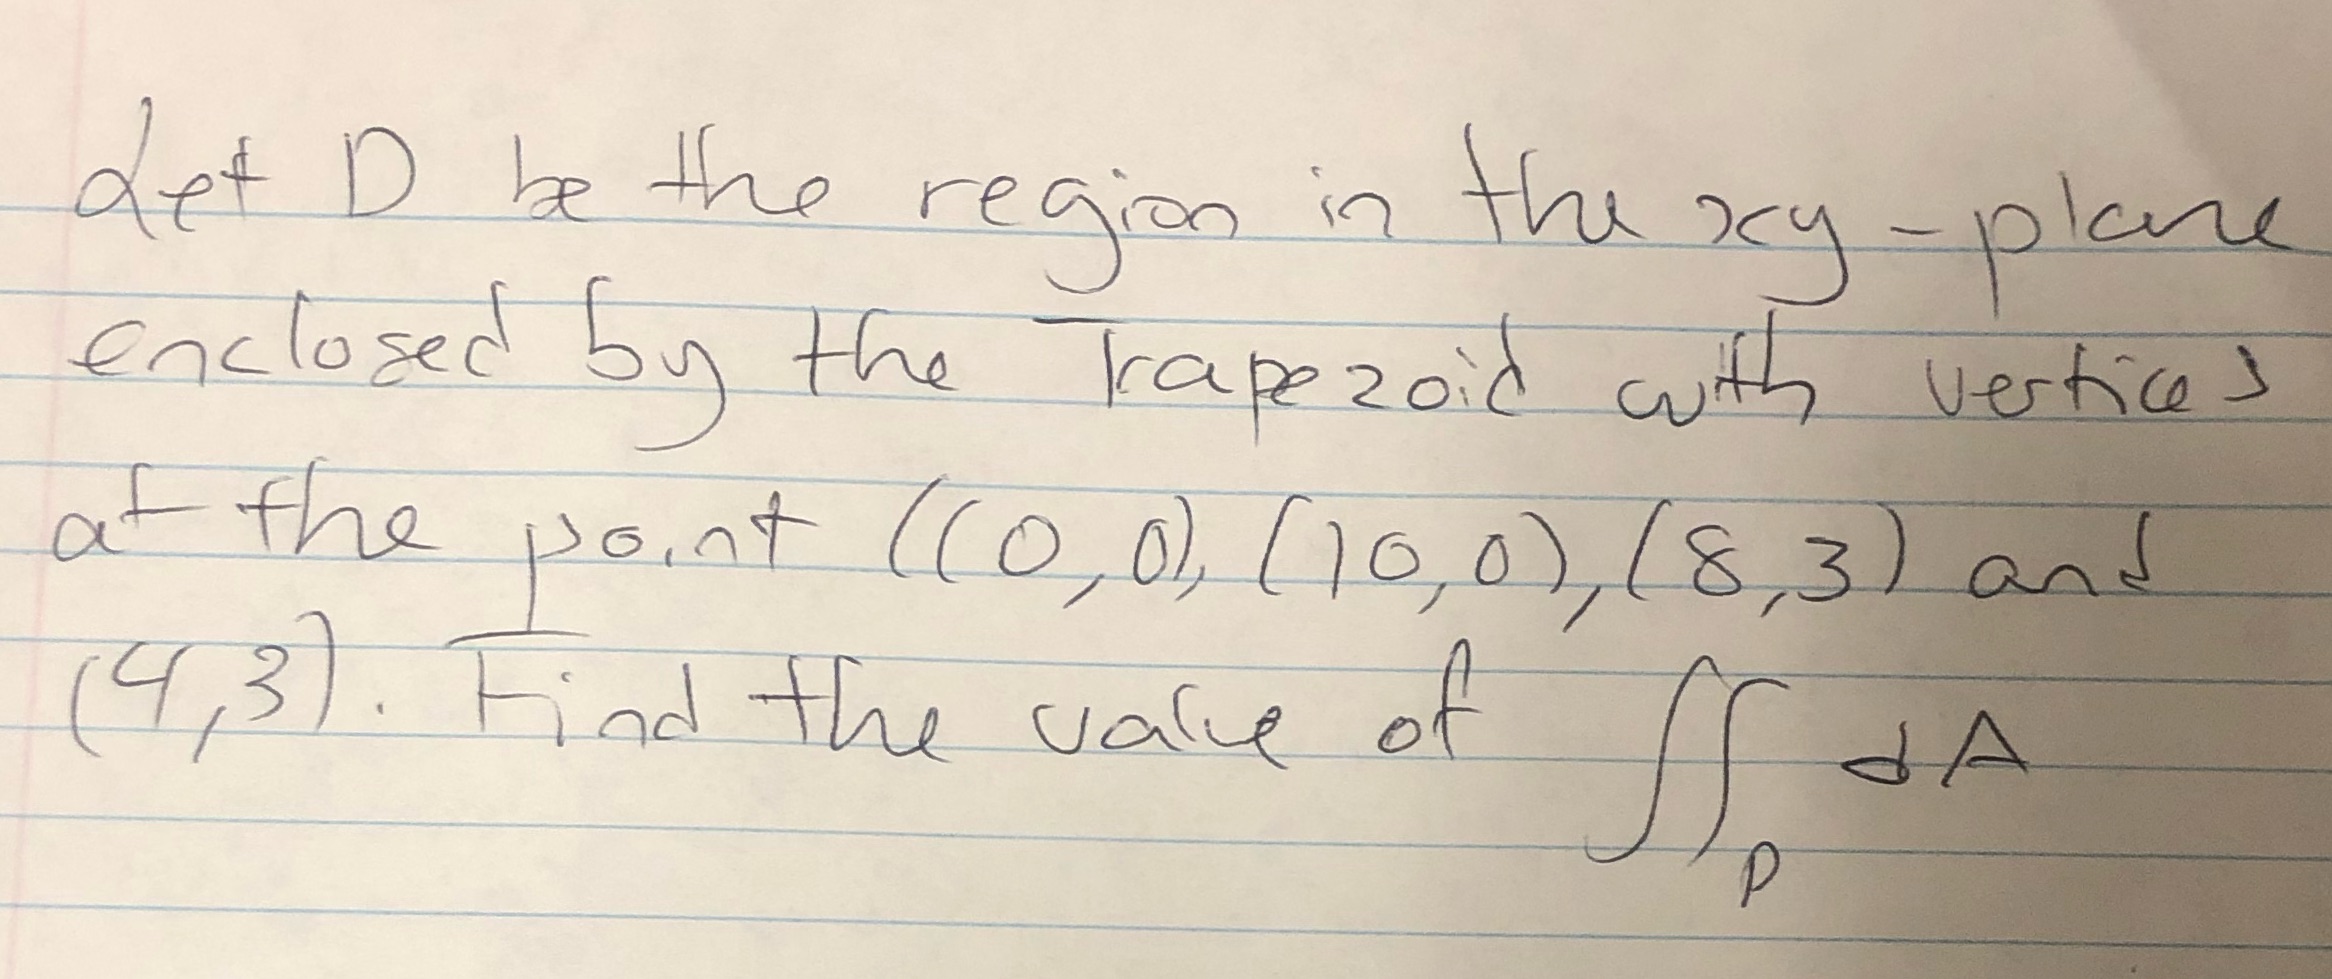 Let D be the region in the xy-plane
enclosed by the Trapezoid with vertices
at the point ((0,0), (10,0), (8,3) and
(4,3). Find the value of ∬_D dA